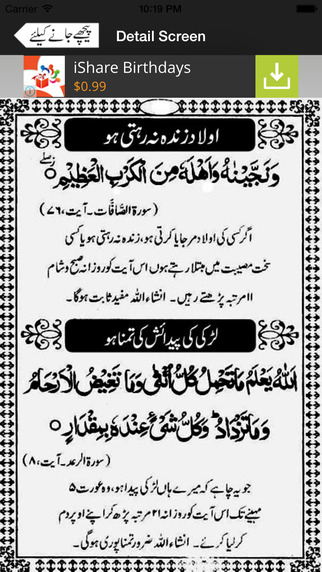 Carrier
10:19 PM
پیچھے جانے کیلئے
Detail Screen
iShare Birthdays
$0.99
اولاد زندہ نہ رہتی ہو
وَنَجَّيْنٰهُ وَاَهْلَهٗ مِنَ الْكَرْبِ الْعَظِيْمِ
(سورۃ الصّٰفّٰات ۔ آیت، ۷۶)
اگر کسی کی اولاد مر جایا کرتی ہو، زندہ نہ رہتی ہو یا کسی
سخت مصیبت میں مبتلا رہتے ہوں اس آیت کو روزانہ صبح و شام
۱۱ مرتبہ پڑھتے رہیں۔ انشاء اللہ مفید ثابت ہوگا۔
لڑکی کی پیدائش کی تمنا ہو
اَللّٰهُ يَعْلَمُ مَا تَحْمِلُ كُلُّ اُنْثٰى وَمَا تَغِيْضُ الْاَرْحَامُ
وَمَا تَزْدَادُ وَكُلُّ شَيْءٍ عِنْدَهٗ بِمِقْدَارٍ
(سورۃ الرعد ۔ آیت، ۸)
جو یہ چاہے کہ میرے ہاں لڑکی پیدا ہو، وہ عورت ۵
مہینے تک اس آیت کو روزانہ ۲۱ مرتبہ پڑھ کر اپنے اوپر دم
کر لیا کرے۔ انشاء اللہ ضرور تمنا پوری ہوگی۔